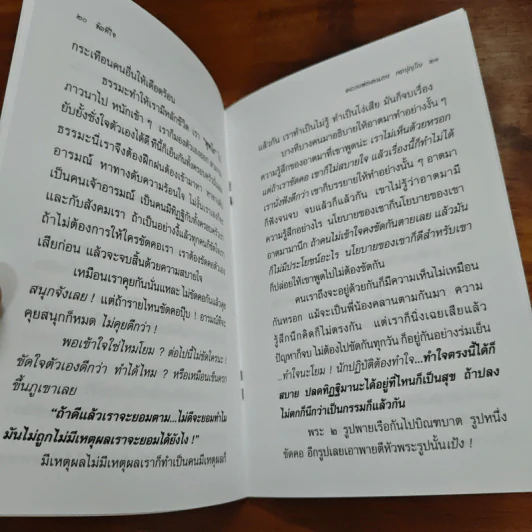 ๒๐ ขัดที่ใจ
กระเทือนคนอื่นให้เดือดร้อน
ธรรมะทำให้เรามีหลักชีวิต เรา
ภาวนาไป หนักเข้า ๆ เราก็มองตัวเองออก รู้จัก
ยับยั้งชั่งใจตัวเองได้ดี ทีนี้ก็เย็นกันทั้งครอบครัว
ธรรมะนี่เราจึงต้องฝึกฝนต้องเข้ามาหา
อารมณ์ หาทางดับความร้อนใจ ไม่งั้นเราเองก็จะ
เป็นคนเจ้าอารมณ์ เป็นคนมีทิฏฐิกับ
และกับสังคมเรา ถ้าเป็นอย่างนี้แล้วทุกคนก็
ถ้าไม่ต้องการให้ใครขัดคอเรา เราต้องขัดคอตัวเอง
เสียก่อน แล้วจะจบสิ้นด้วยความสบายใจ
เหมือนเราคุยกันนั่นแหละ ไม่ขัดคอกันแล้วคุย
สนุกจังเลย ! แต่ถ้ารายไหนขัดคอปุ๊บ ! อารมณ์ที่จะ
คุยสนุกก็หมด ไม่คุยดีกว่า !
พอเข้าใจใช่ไหมโยม ? ต่อไปนี้ไม่ขัดใครนะ !
ขัดใจตัวเองดีกว่า ทำได้ไหม ? หรือเหมือนเข็นครก
ขึ้นภูเขาเลย
“ถ้าดีแล้วเราจะยอมตาม...ไม่ดีจะยอมทำไม
มันไม่ถูกไม่มีเหตุผลเราจะยอมได้ยังไง !”
มีเหตุผลไม่มีเหตุผลเราก็ทำเป็นคนมีเหตุผลก็
๒๑
แล้วกัน เราทำเป็นไม่รู้ ทำเป็นโง่เสีย มันก็จบเรื่อง
บางทีบางคนมาอธิบายให้อาตมาทำอย่างงั้น ๆ
ความรู้สึกของอาตมาที่เขาพูดน่ะ เราไม่เห็นด้วยหรอก
แต่ถ้าเราขัดคอ เขาก็ไม่สบายใจ แล้วเรื่องนี้ก็ทำไม่ได้
เรานั่งฟังดีกว่า เขาก็บรรยายให้ทำอย่างนั้น ๆ อาตมา
ก็ฟังจนจบ จบแล้วก็แล้วกัน เขาไม่รู้ว่าอาตมามี
ความรู้สึกอย่างไร นโยบายของเขาก็นโยบายของเขา
อาตมามานึก ถ้าคนไม่เข้าใจคงขัดกันตายเลย แล้วมัน
ก็ไม่มีประโยชน์อะไร นโยบายของเขาก็ดีสำหรับเขา
ก็ปล่อยให้เขาพูดไปไม่ต้องขัดกัน
คนเราถึงจะอยู่ด้วยกันก็มีความเห็นไม่เหมือน
กันหรอก แม้จะเป็นพี่น้องคลานตามกันมา ความ
รู้สึกนึกคิดก็ไม่ตรงกัน แต่เราก็นิ่งเฉยเสียแล้ว
ปัญหาก็จบ ไม่ต้องไปขัดกันทุกวัน ก็อยู่กันอย่างร่มเย็น
..ทำใจนะโยม ! นักปฏิบัติต้องทำใจ...ทำใจตรงนี้ได้ก็
สบาย ปลดทิฏฐิมานะได้อยู่ที่ไหนก็เป็นสุข ถ้าปลง
ไม่ตกก็นึกว่าเป็นกรรมก็แล้วกัน
พระ ๒ รูปพายเรือกันไปบิณฑบาต รูปหนึ่ง
ขัดคอ อีกรูปเลยเอาพายตีหัวพระรูปนั้นเป้ง !